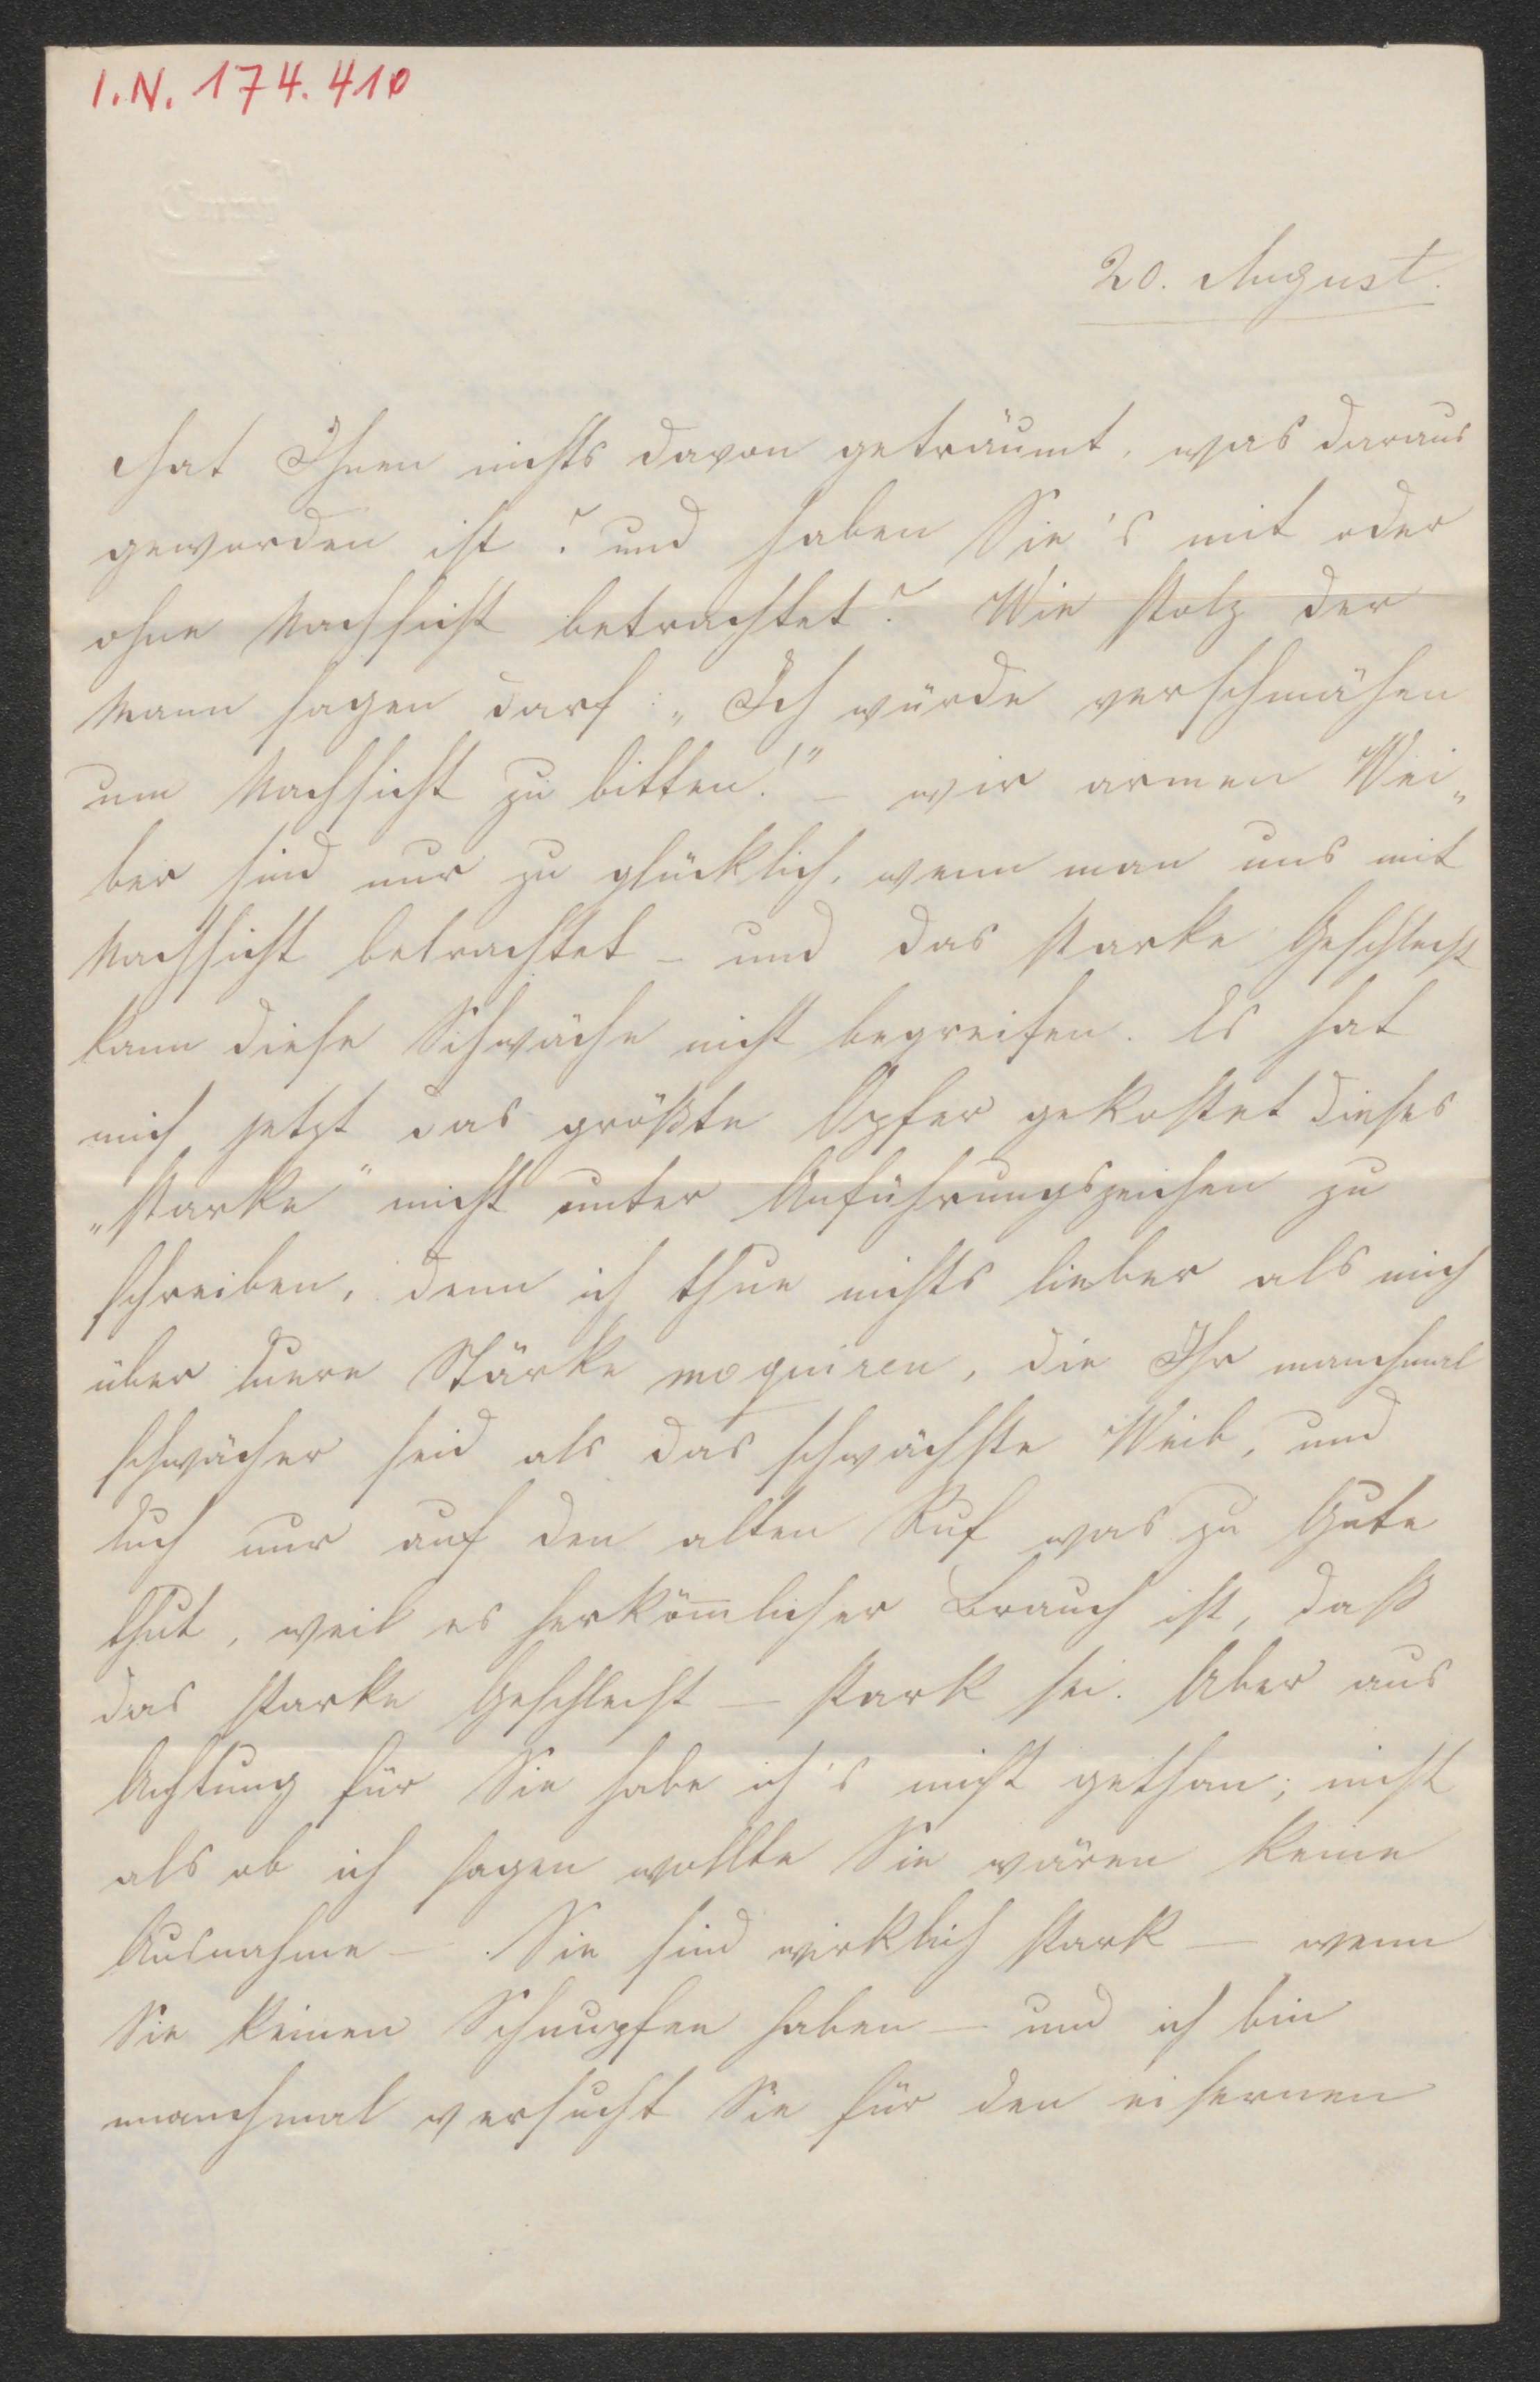 I.N. 174.410
20. August.
Hat Ihnen nichts davon geträumt, was daraus
geworden ist? und haben Sie's mit oder
ohne Nachsicht betrachtet? Wie stolz der
Mann sagen darf: „Ich würde verschmähen
um Nachsicht zu bitten!" – wir armen Wei„
ber sind nur zu glücklich, wenn man uns mit
Nachsicht betrachtet – und das starke Geschlecht
kann diese Schwäche nicht begreifen. Es hat
mich jetzt das größte Opfer gekostet dieses
„starke" nicht unter Anführungszeichen zu
schreiben, denn ich thue nichts lieber als mich
über Euere Stärke moquiren, die Ihr manchmal
schwächer seid als das schwächste Weib, und
Euch nur auf den alten Ruf was zu Gute
thut, weil es herkom̅licher Brauch ist, daß
das starke Geschlecht – stark sei. Aber aus
Achtung für Sie habe ich's nicht gethan; nicht
als ob ich sagen wollte Sie wären keine
Ausnahme – . Sie sind wirklich stark – wenn
Sie keinen Schnupfen haben – und ich bin
manchmal versucht Sie für den eisernen